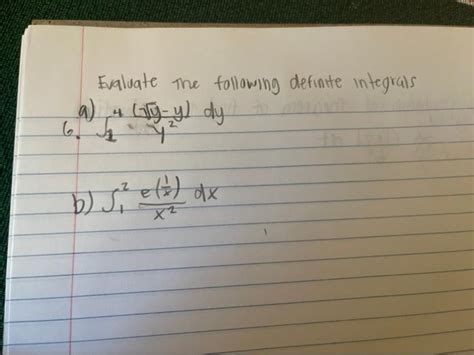 Evaluate The following definite integrals
a) ∫₁⁴ (√y-y) dy
6. y²
b) ∫₁² e(1/x) dx
x²